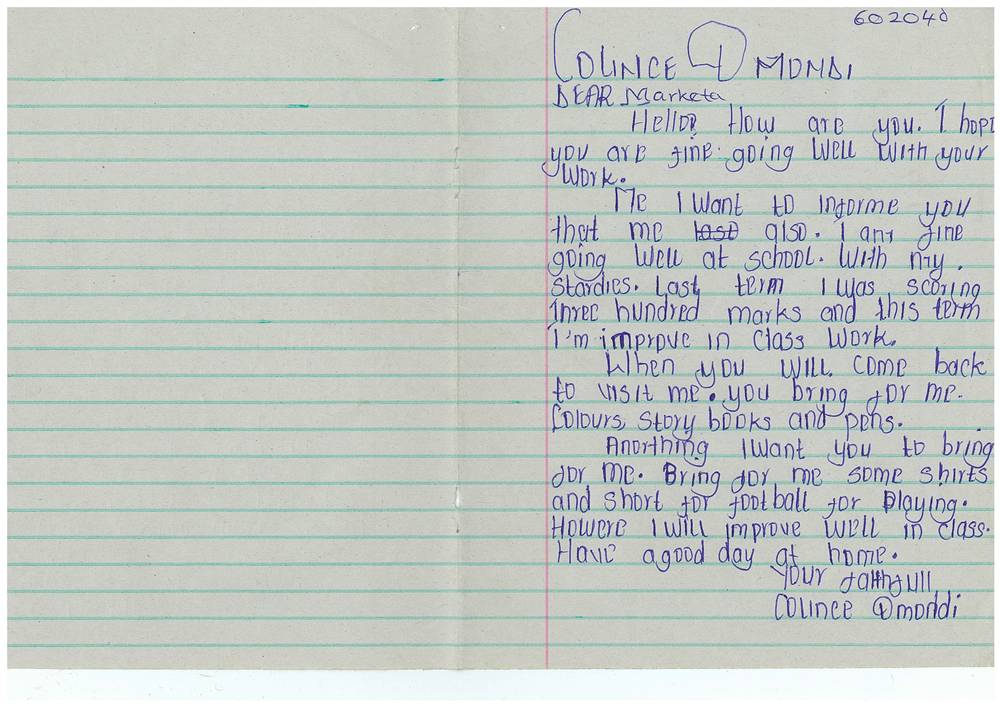 602040
COLINCE OMONDI
DEAR Marketa
Hello? How are you. I hope
you are fine. going well with your
work.
Me I want to informe you
that me last also. I am fine
going well at school. With my.
stardies. Last term I was scoring
three hundred marks and this term
I'm improve in class work.
When you will come back
to visit me. you bring for me.
Colours, story books and pens.
Anorthing I want you to bring
for me. Bring for me some shirts
and short for football for playing.
Howere I will improve well in class.
Have a good day at home.
Your faithfull
Colince Omondi